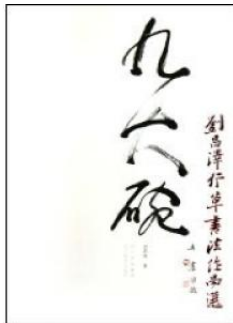 九大碗
劉昌澤行草書法作品選